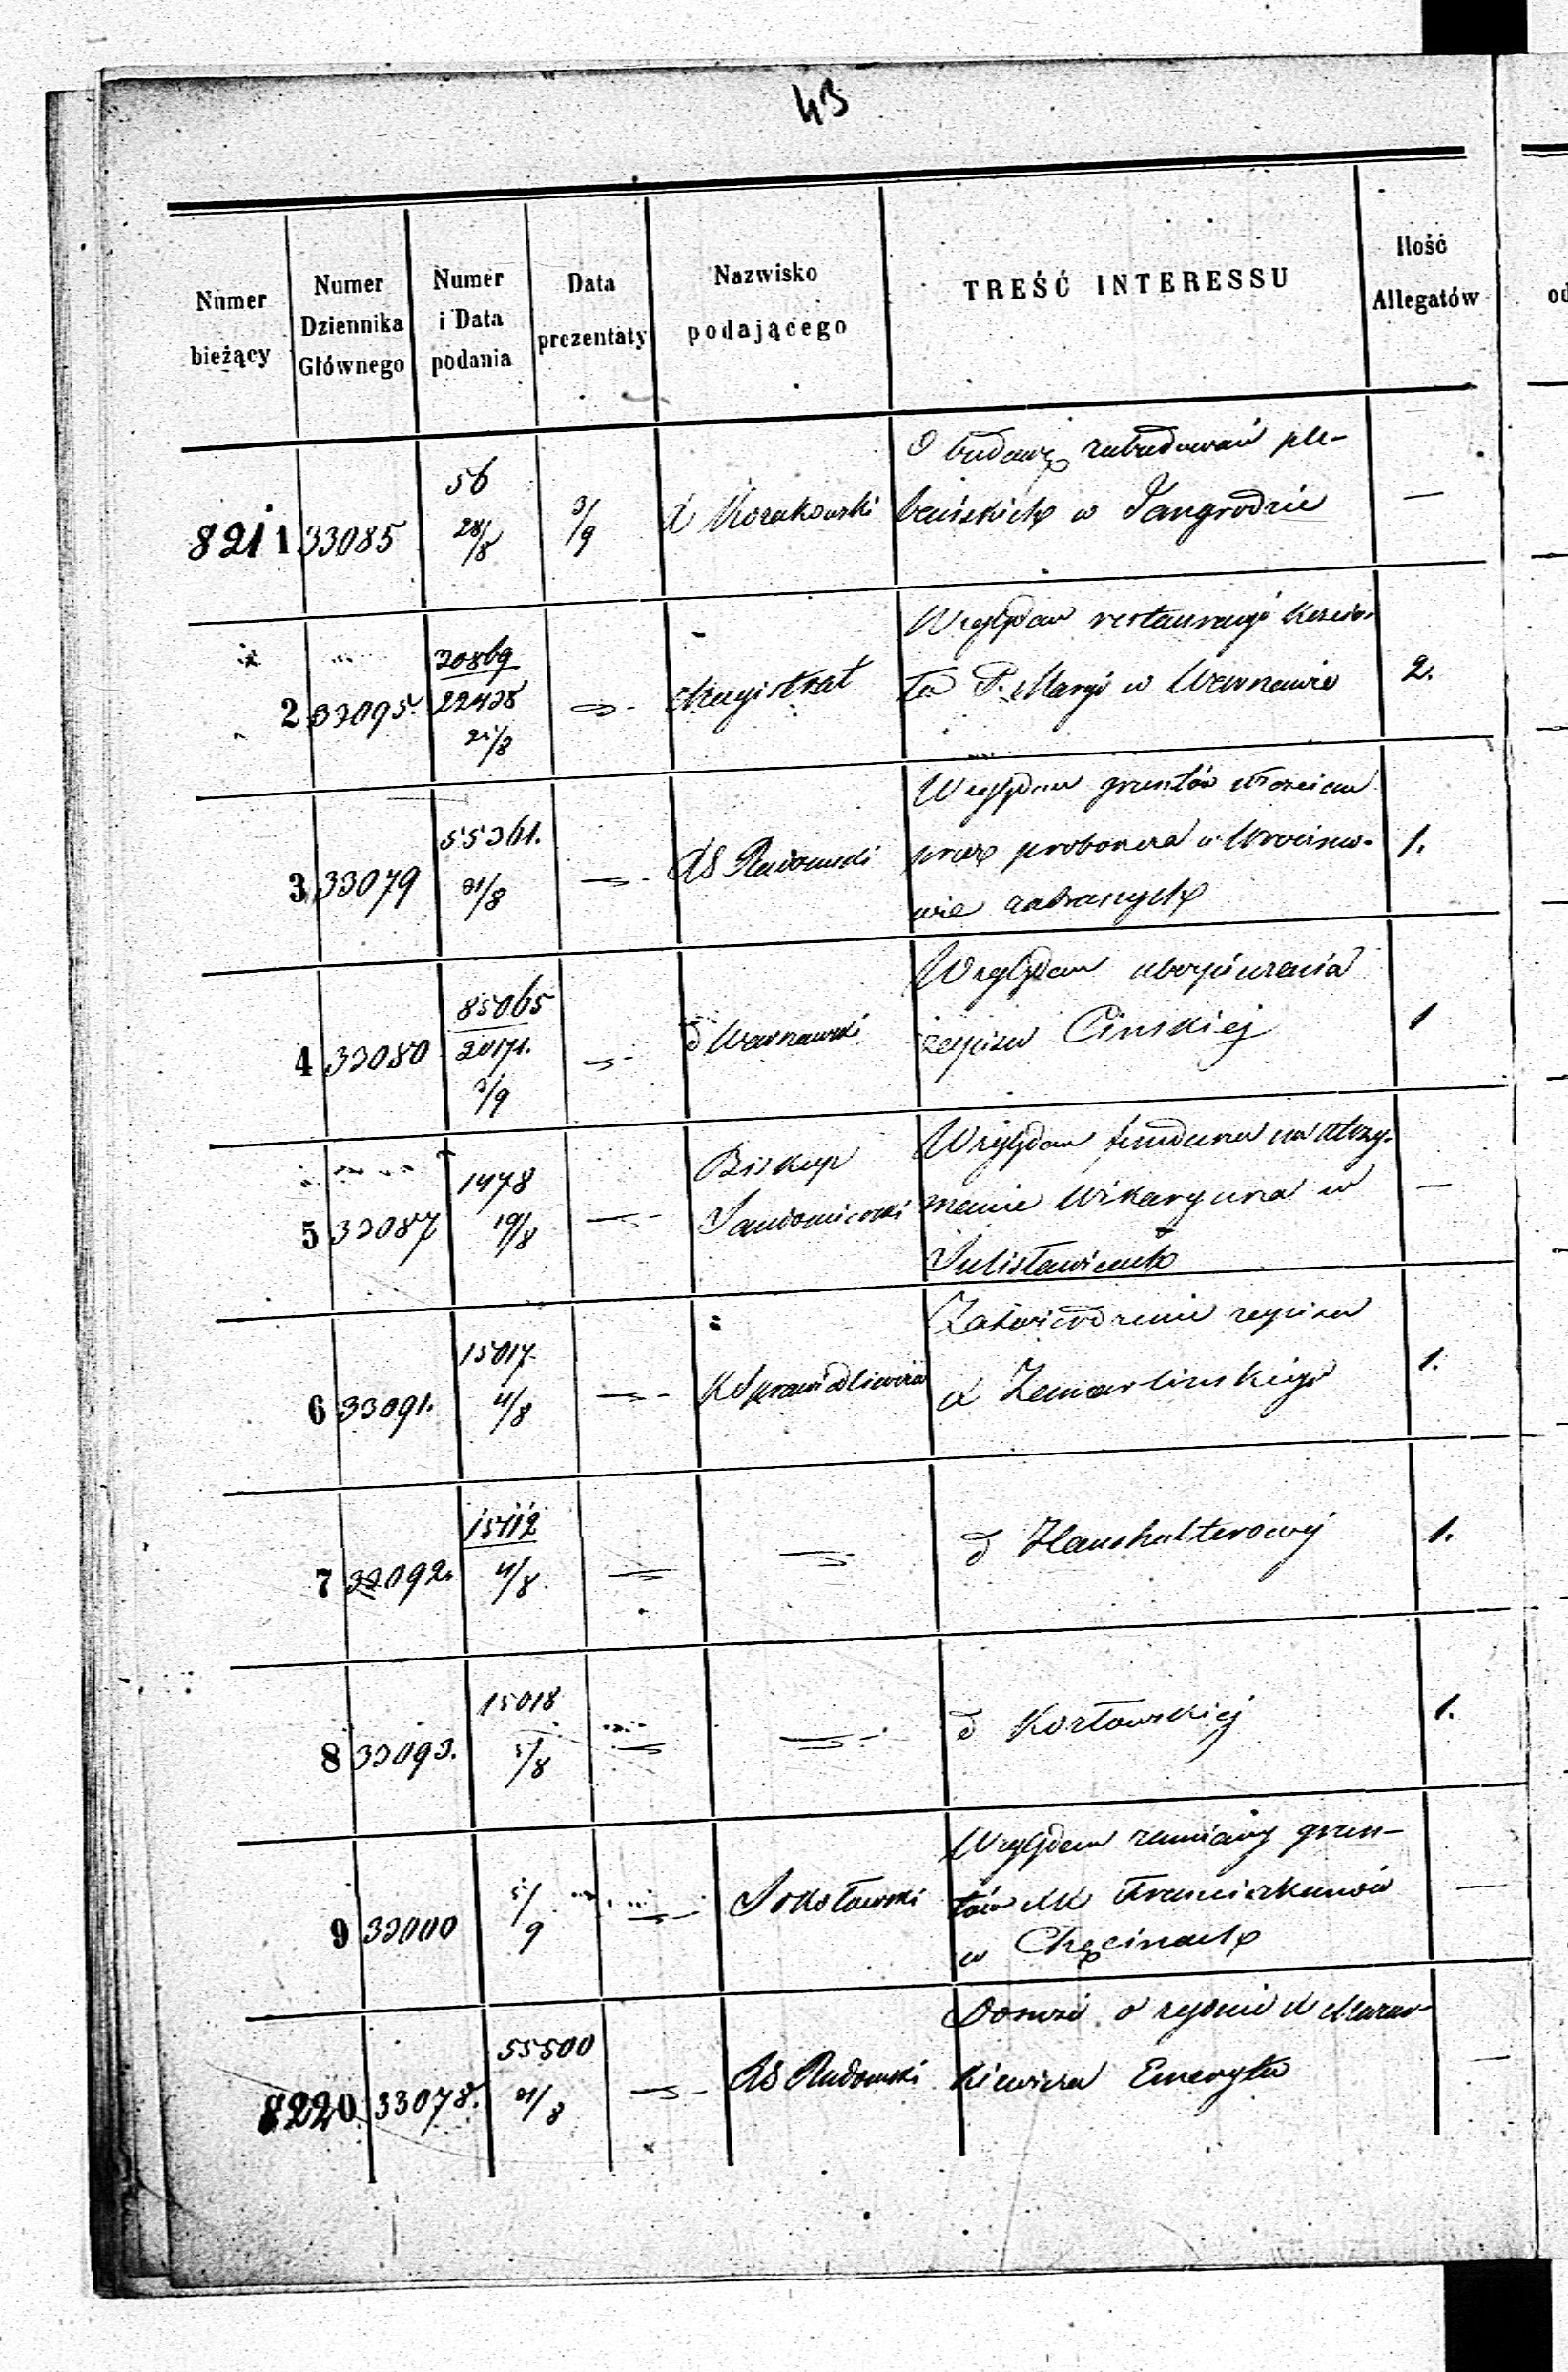 43
Numer bieżący | Numer Dziennika Głównego | Numer i Data podania | Data prezentaty | Nazwisko podającego | TREŚĆ INTERESSU | Ilość Allegatów
8211 | 33085 | 56 28/8 | 3/9 | X Korakowski | O budowę zabudowań ple-
bańskich w Tangrodzie | —
2 | 33095. | 20869 22438 21/8 | — | Magistrat | Względem restauracyi kościo-
ła P. Maryi w Warszawie | 2.
3 | 33079 | 55361. 31/8 | — | RG Radomski | Względem gruntów włościan
przez proboszcza w Wrocisze-
wie zabranych | 1.
4 | 33080 | 85065 20171. 3/9 | — | d Warszawski | Względem ubezpieczenia
zapisu Cinskiej | 1
5 | 33087 | 1478 19/8 | — | Biskup Sandomierski | Względem funduszu na utrzy-
manie Wikaryusza w
Sulisławicach | —
6 | 33091. | 15017. 4/8 | — | K Sprawiedliwości | Zatwierdzenie zapisu
X Zemarlinskiego | 1.
7 | 33092. | 15112 4/8 | — | — | d Hanshalterowej | 1.
8 | 33093. | 15018 5/8 | — | — | d Kozłowskiej | 1.
9 | 33000 | 5/9 | — | Sokołowski | Względem zamiany grun-
tów XX Franciszkanów
w Chęcinach | —
8220 | 33078. | 55500 31/8 | — | RG Radomski | Donosi o zgonie X Mazur-
kiewicza Emeryta | —